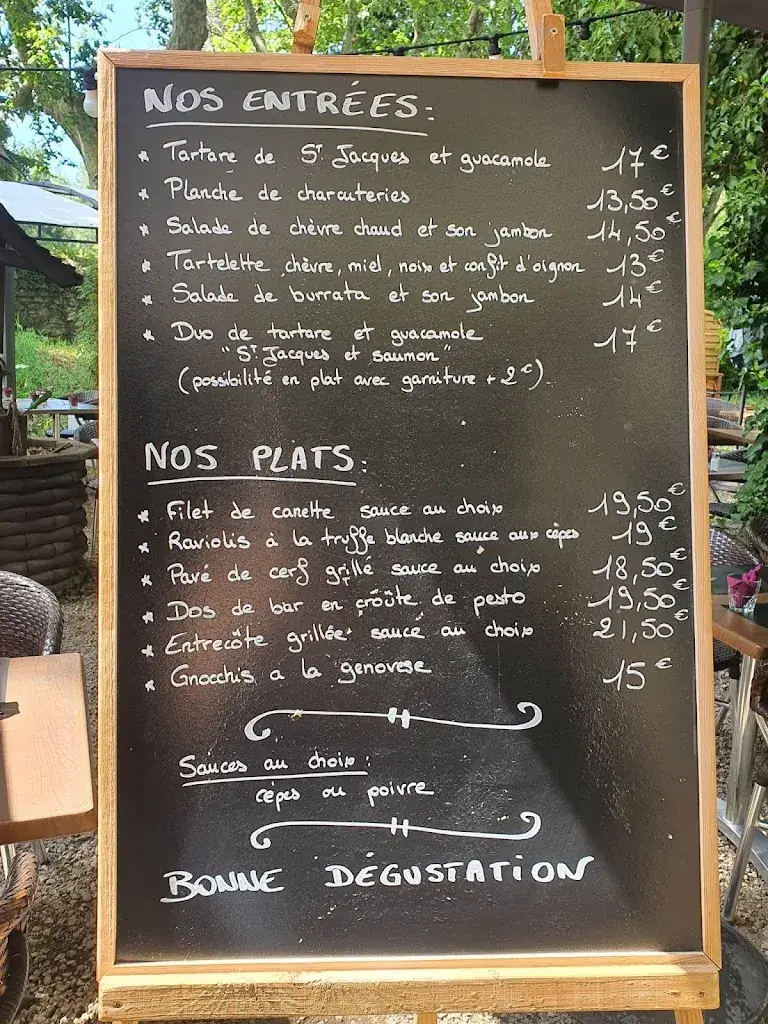 NOS ENTRÉES:
* Tartare de St Jacques et guacamole 17€
* Planche de charcuteries 13,50€
* Salade de chèvre chaud et son jambon 14,50€
* Tartelette chèvre, miel, noix et confit d'oignon 13€
* Salade de burrata et son jambon 14€
* Duo de tartare et guacamole 17€
"St Jacques et saumon"
(possibilité en plat avec garniture + 2€).
NOS PLATS:
* Filet de canette sauce au choix 19,50€
* Raviolis à la truffe blanche sauce aux cèpes 19€
* Pavé de cerf grillé sauce au choix 18,50€
* Dos de bar en croûte de pesto 19,50€
* Entrecôte grillée sauce au choix 21,50€
* Gnocchis a la genovese 15€
Sauces au choix:
cèpes ou poivre
BONNE DÉGUSTATION